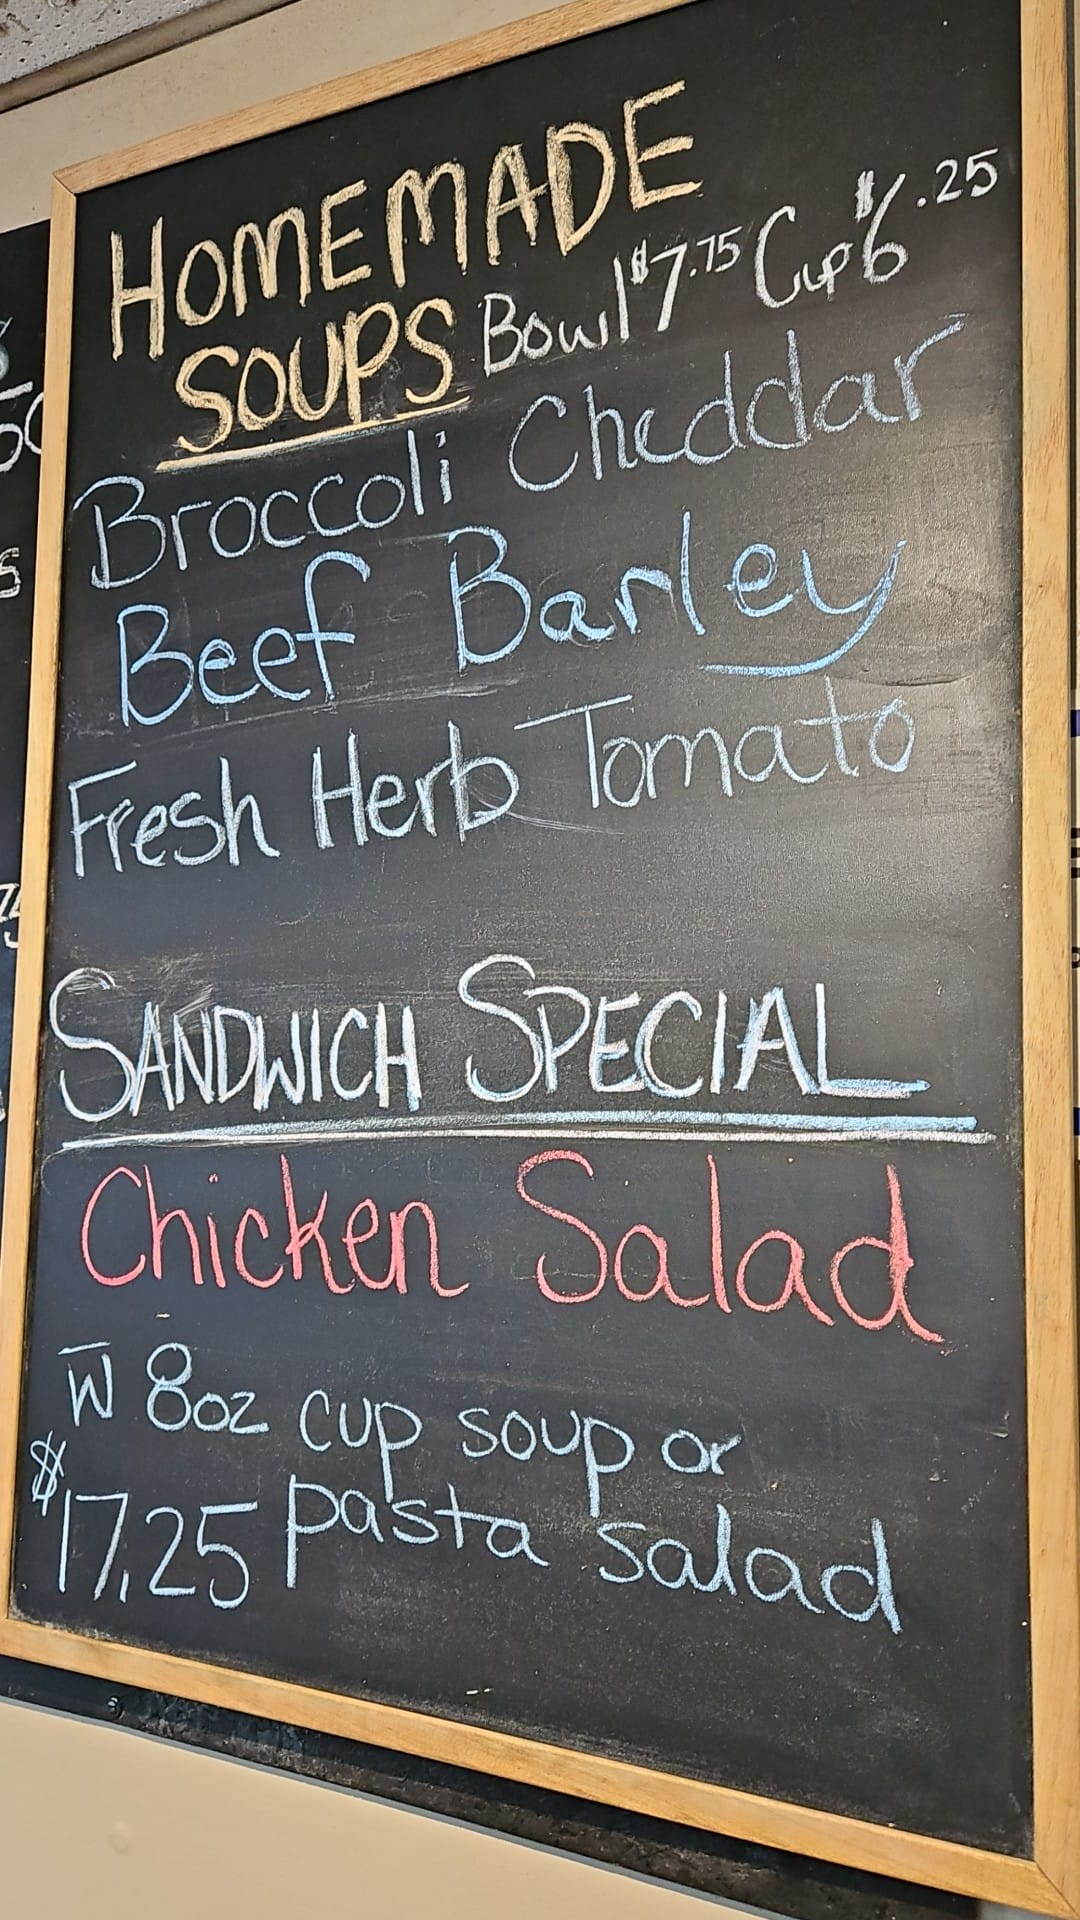 HOMEMADE
SOUPS Bowl $7.75 Cup $6.25
Broccoli Cheddar
Beef Barley
Fresh Herb Tomato
SANDWICH SPECIAL
Chicken Salad
W 8oz cup soup or
$17.25 pasta salad